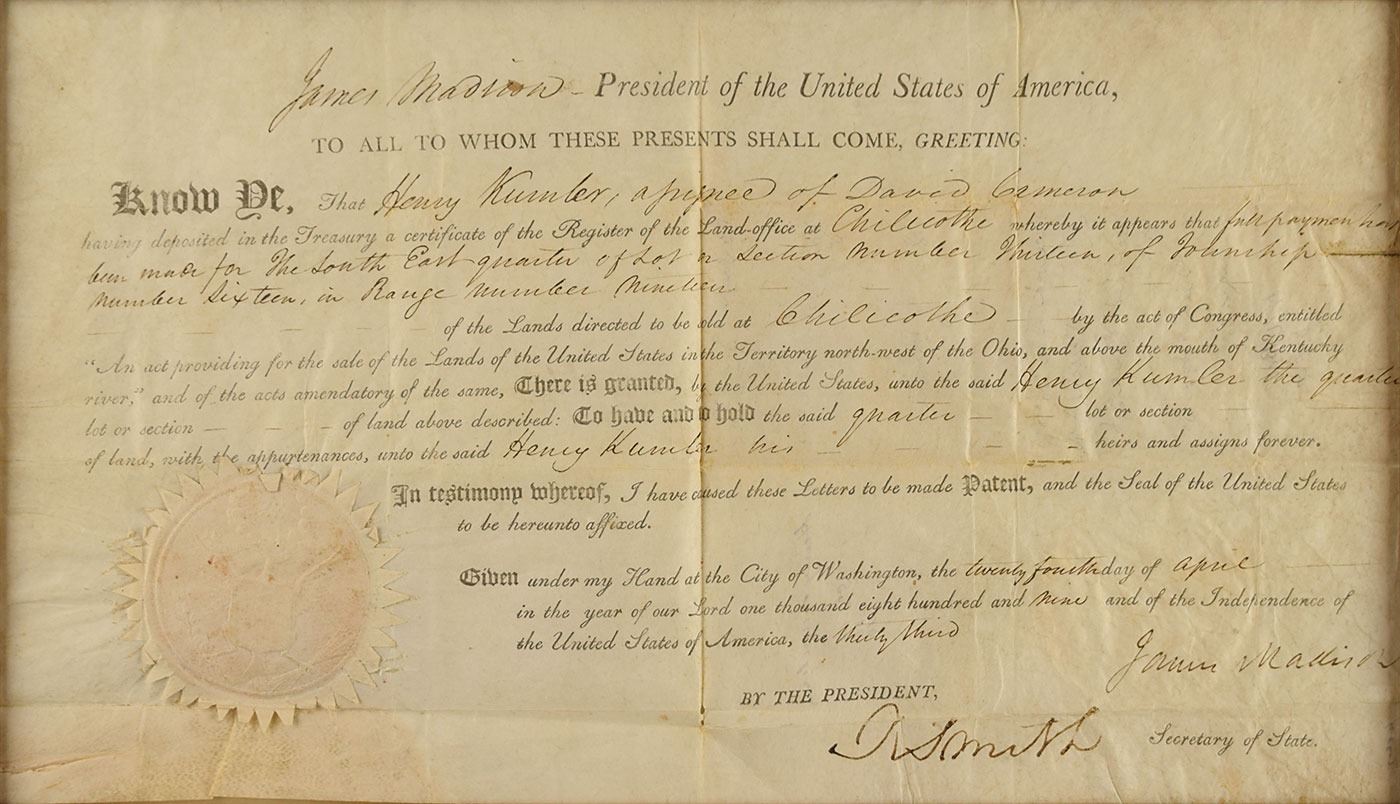 James Madison - President of the United States of America,
TO ALL TO WHOM THESE PRESENTS SHALL COME, GREETING:
Know Ye, That Henry Kumler, assignee of David Cameron
having deposited in the Treasury a certificate of the Register of the Land-office at Chilicothe whereby it appears that full payment has
been made for The South East quarter of Lot or Section number Thirteen, of Township
number Sixteen, in Range number Nineteen
of the Lands directed to be sold at Chilicothe by the act of Congress, entitled
"An act providing for the sale of the Lands of the United States in the Territory north-west of the Ohio, and above the mouth of Kentucky
river," and of the acts amendatory of the same, There is granted, by the United States, unto the said Henry Kumler the quarter
lot or section of land above described: To have and to hold the said quarter lot or section
of land, with the appurtenances, unto the said Henry Kumler his heirs and assigns forever.
In testimony whereof, I have caused these Letters to be made Patent, and the Seal of the United States
to be hereunto affixed.
Given under my Hand at the City of Washington, the twenty fourth day of April
in the year of our Lord one thousand eight hundred and nine and of the Independence of
the United States of America, the thirty third
James Madison
BY THE PRESIDENT,
R Smith Secretary of State.